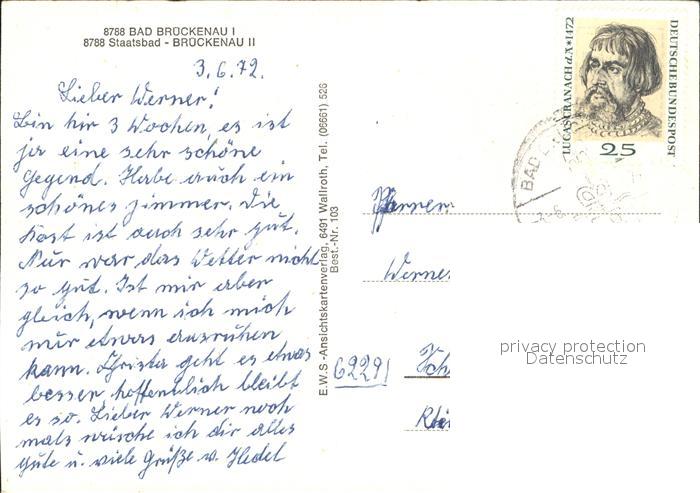 8788 BAD BRÜCKENAU I
8788 Staatsbad - BRÜCKENAU II
3.6.72.
Lieber Werner!
Bin hir 3 Wochen, es ist
ja eine sehr schöne
Gegend. Habe auch ein
schönes Zimmer. Die
Kost ist auch sehr gut.
Nur war das Wetter nicht
so gut. Ist mir aber
gleich, wenn ich mich
nur etwas ausruhen
kann. Christa geht es etwas
besser, hoffendlich bleibt
es so. Lieber Werner noch
mals wüsche ich dir alles
gute u. viele Grüße v. Hedel
E.W.S-Ansichtskartenverlag, 6491 Wallroth, Tel. (06661) 526
Best.-Nr. 103
LUCAS CRANACH d.Ä.*1472
DEUTSCHE BUNDESPOST
25
BAD
Werne
6229
privacy protection
Datenschutz